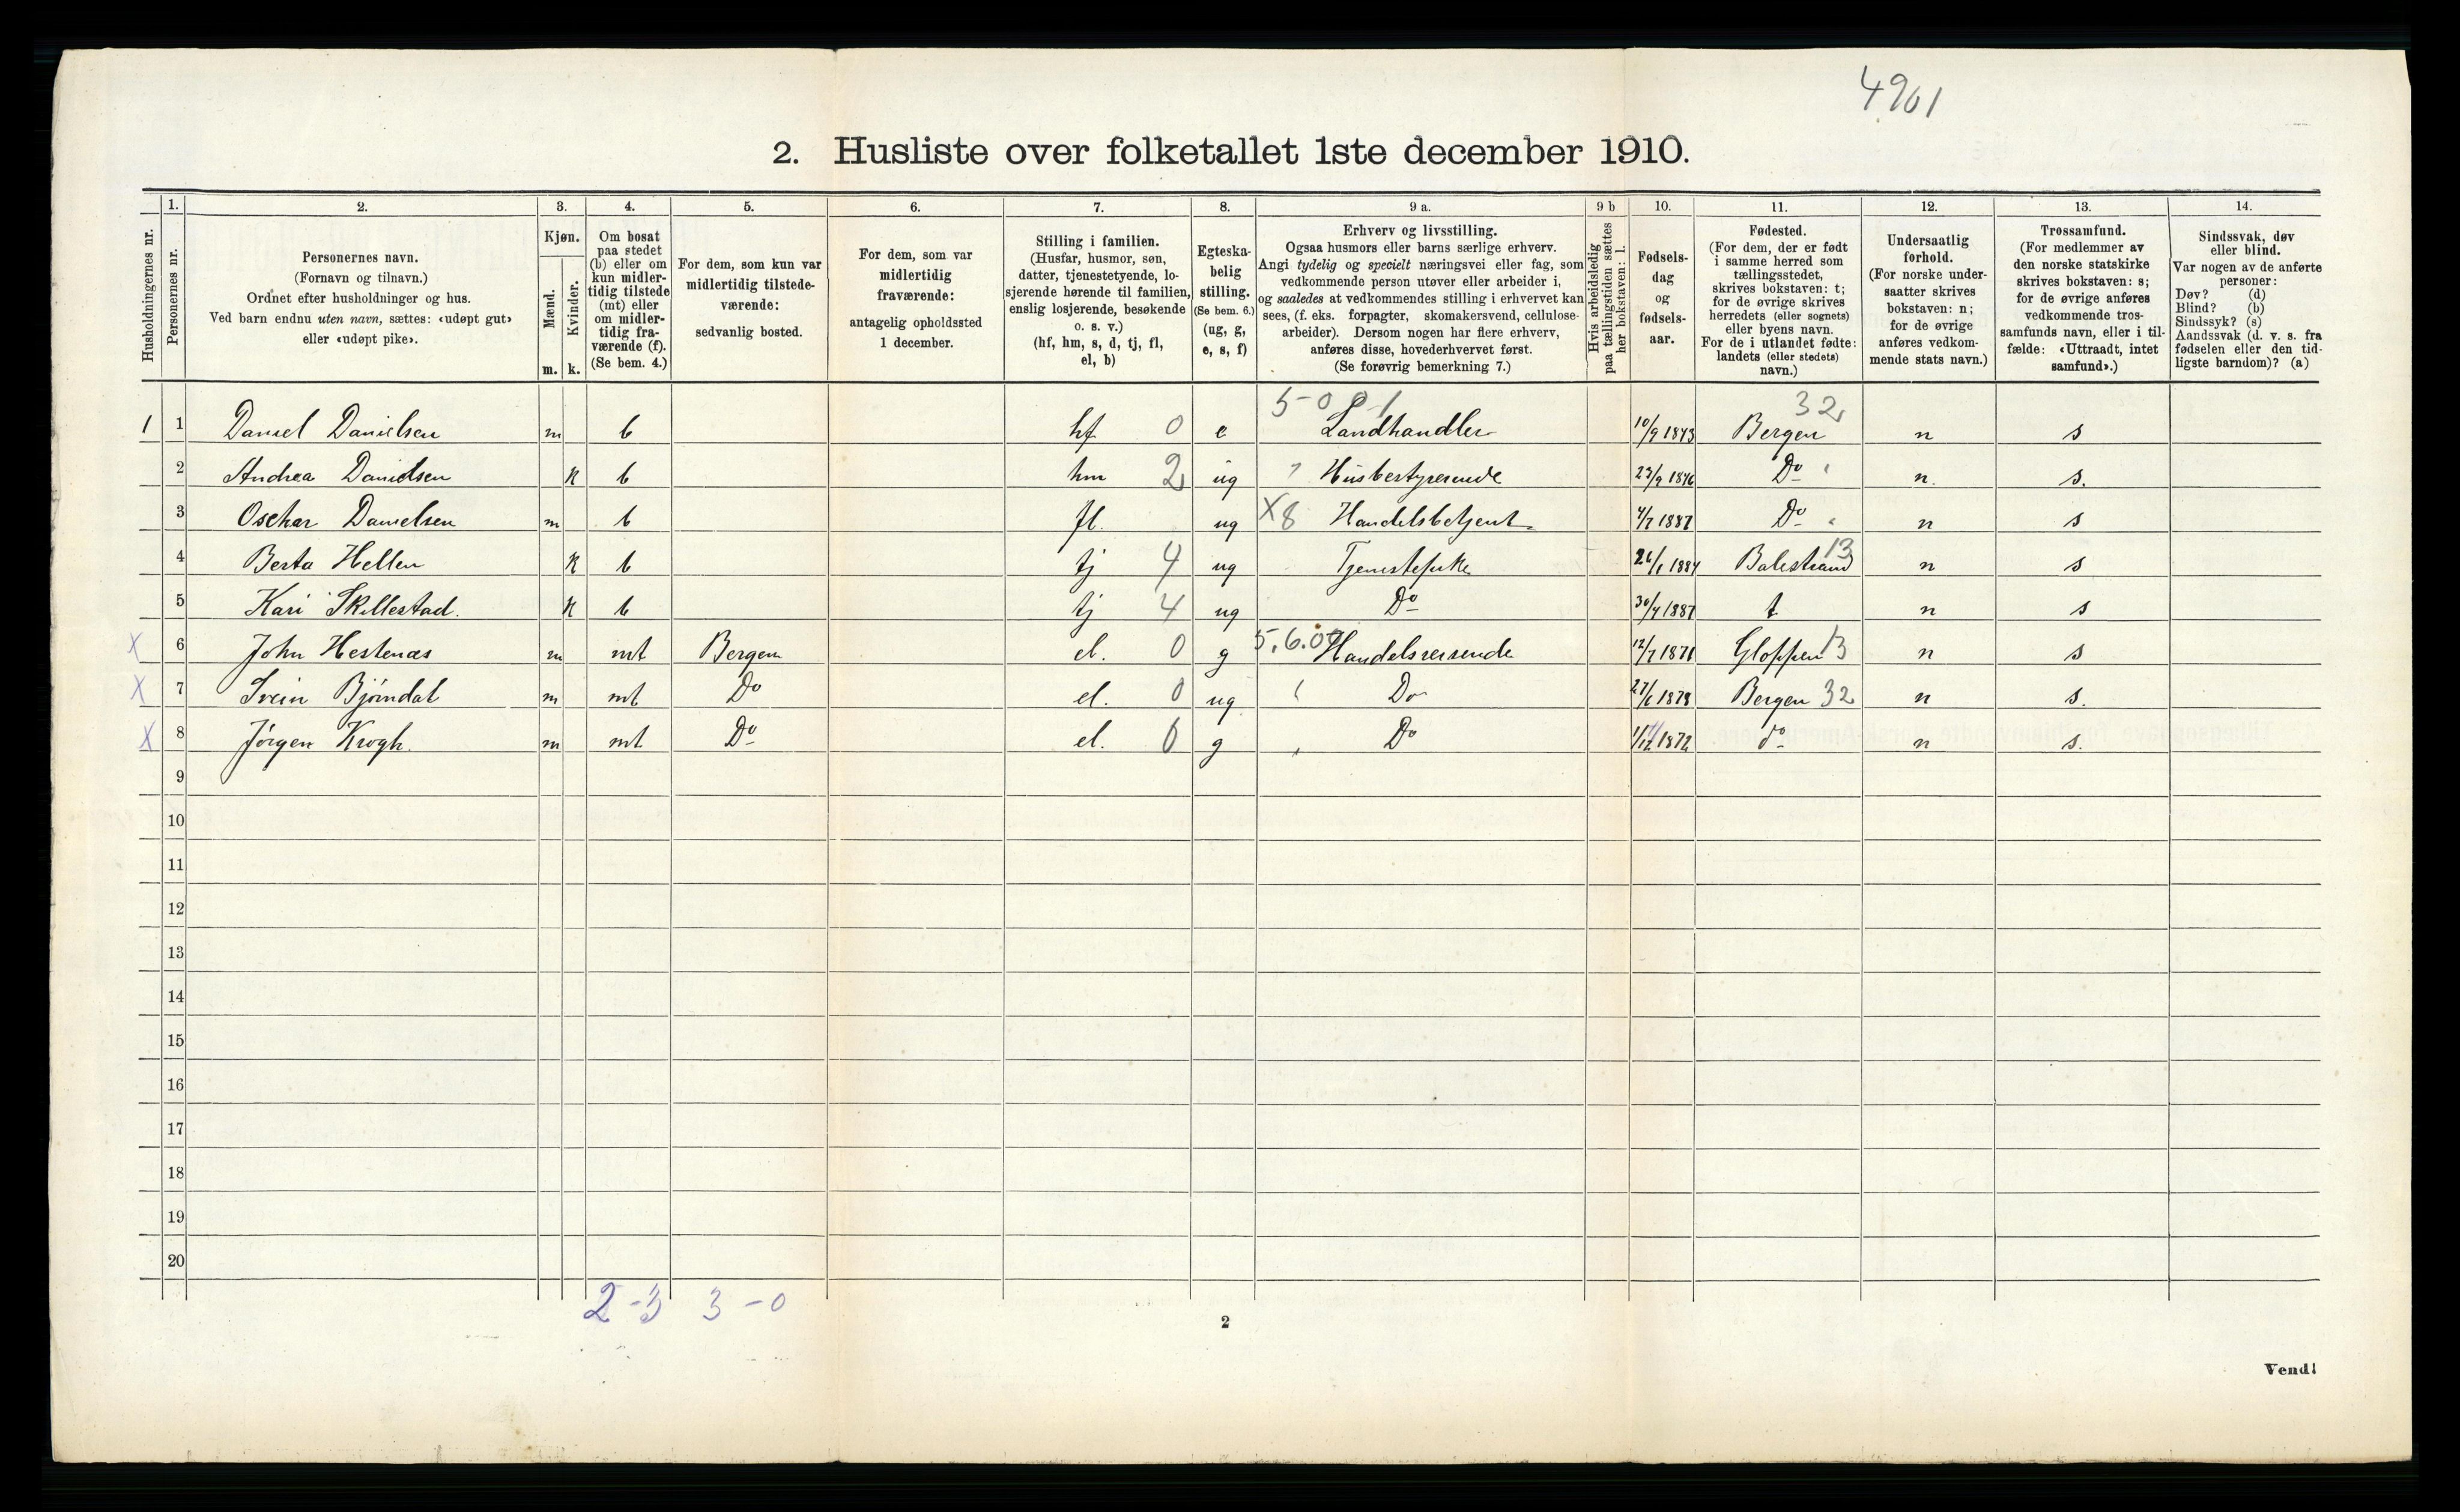 4901
2. Husliste over folketallet 1ste december 1910.
Husholdningernes nr.
1.
Personernes nr.
2.
Personernes navn.
(Fornavn og tilnavn.)
Ordnet efter husholdninger og hus.
Ved barn endnu uten navn, sættes: «udøpt gut»
eller «udøpt pike».
3.
Kjøn.
Mænd.
Kvinder.
m. k.
4.
Om bosat
paa stedet
(b) eller om
kun midler-
tidig tilstede
(mt) eller
om midler-
tidig fra-
værende (f).
(Se bem. 4.)
5.
For dem, som kun var
midlertidig tilstede-
værende:
sedvanlig bosted.
6.
For dem, som var
midlertidig
fraværende:
antagelig opholdssted
1 december.
7.
Stilling i familien.
(Husfar, husmor, søn,
datter, tjenestetyende, lo-
sjerende hørende til familien,
enslig losjerende, besøkende
o. s. v.)
(hf, hm, s, d, tj, fl,
el, b)
8.
Egteska-
belig
stilling.
(Se bem. 6.)
(ug, g,
e, s, f)
9 a.
Erhverv og livsstilling.
Ogsaa husmors eller barns særlige erhverv.
Angi tydelig og specielt næringsvei eller fag, som
vedkommende person utøver eller arbeider i,
og saaledes at vedkommendes stilling i erhvervet kan
sees, (f. eks. forpagter, skomakersvend, cellulose-
arbeider). Dersom nogen har flere erhverv,
anføres disse, hovederhvervet først.
(Se forøvrig bemerkning 7.)
9 b
Hvis arbeidsledig
paa tællingstiden sættes
her bokstaven: l.
10.
Fødsels-
dag
og
fødsels-
aar.
11.
Fødested.
(For dem, der er født
i samme herred som
tællingsstedet,
skrives bokstaven: t;
for de øvrige skrives
herredets (eller sognets)
eller byens navn.
For de i utlandet fødte:
landets (eller stedets)
navn.)
12.
Undersaatlig
forhold.
(For norske under-
saatter skrives
bokstaven: n;
for de øvrige
anføres vedkom-
mende stats navn.)
13.
Trossamfund.
(For medlemmer av
den norske statskirke
skrives bokstaven: s;
for de øvrige anføres
vedkommende tros-
samfunds navn, eller i til-
fælde: «Uttraadt, intet
samfund».)
14.
Sindssvak, døv
eller blind.
Var nogen av de anførte
personer:
Døv? (d)
Blind? (b)
Sindssyk? (s)
Aandssvak (d. v. s. fra
fødselen eller den tid-
ligste barndom)? (a)
1 1 Daniel Danielsen m b hf 0 e Landhandler 10/9 1843 Bergen 32 n s
2 Andrea Danielsen k b hm 2 ug Husbestyresende 1846 Do n. s.
3 Oschar Danielsen m b fl. ug X8 Handelsbetjent 4/7 1887 Do n s
4 Berta Hellen k b tj 4 ug Tjenestepike 26/1 1884 Balestrand 13 n s
5 Kari Skillestad. k b tj 4 ug Do 30/4 1887 t n s
X 6 John Hestenæs m mt Bergen el. 0 g 5.6.0 Handelsreisende 12/7 1871 Gloppen 13 n s
X 7 Svein Bjørndal m mt Do el. 0 ug Do 27/6 1878 Bergen 32 n s.
X 8 Jørgen Krogh. m mt Do el. 0 g Do 1872 do n s.
9
10
11
12
13
14
15
16
17
18
19
20
2-3 3-0
2
Vend!